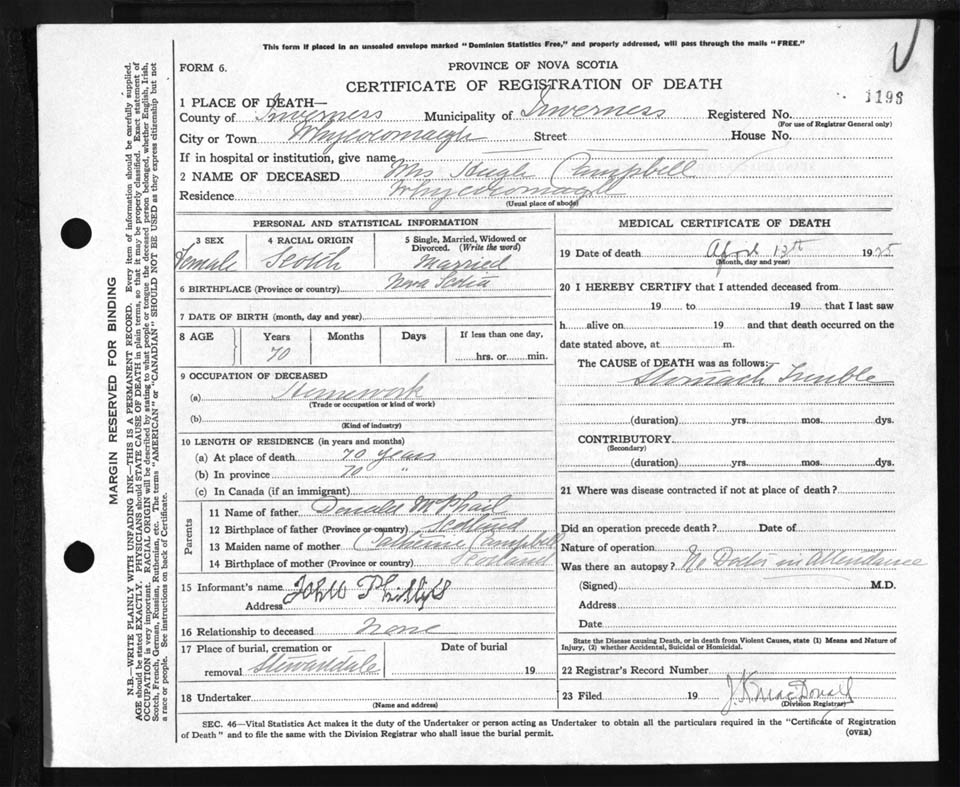 This form if placed in an unsealed envelope marked "Dominion Statistics Free," and properly addressed, will pass through the mails "FREE."
FORM 6.
PROVINCE OF NOVA SCOTIA
CERTIFICATE OF REGISTRATION OF DEATH
1198
1 PLACE OF DEATH—
County of Inverness Municipality of Inverness Registered No.
(For use of Registrar General only)
City or Town Whycocomagh Street House No.
If in hospital or institution, give name
2 NAME OF DECEASED Mrs Hugh Campbell
Residence Whycocomagh
(Usual place of abode)
PERSONAL AND STATISTICAL INFORMATION
3 SEX
Female
4 RACIAL ORIGIN
Scotch
5 Single, Married, Widowed or Divorced. (Write the word)
Married
6 BIRTHPLACE (Province or country) Nova Scotia
7 DATE OF BIRTH (month, day and year)
8 AGE
Years
70
Months
Days
If less than one day,
hrs. or min.
9 OCCUPATION OF DECEASED
(a) Homework
(Trade or occupation or kind of work)
(b)
(Kind of industry)
10 LENGTH OF RESIDENCE (in years and months)
(a) At place of death 70 years
(b) In province 70 "
(c) In Canada (if an immigrant)
Parents
11 Name of father Donald McPhail
12 Birthplace of father (Province or country) Scotland
13 Maiden name of mother Catherine Campbell
14 Birthplace of mother (Province or country) Scotland
15 Informant's name John Phillips
Address
16 Relationship to deceased None
17 Place of burial, cremation or removal Stewartdale
Date of burial
19
18 Undertaker
(Name and address)
MEDICAL CERTIFICATE OF DEATH
19 Date of death April 13th 1925
(Month, day and year)
20 I HEREBY CERTIFY that I attended deceased from
19 to 19 that I last saw
h alive on 19 and that death occurred on the
date stated above, at m.
The CAUSE of DEATH was as follows:
Stomach Trouble
(duration) yrs. mos. dys.
CONTRIBUTORY
(Secondary)
(duration) yrs. mos. dys.
21 Where was disease contracted if not at place of death?
Did an operation precede death? Date of
Nature of operation
Was there an autopsy? No Doctor in Attendance
(Signed) M.D.
Address
Date
State the Disease causing Death, or in death from Violent Causes, state (1) Means and Nature of
Injury, (2) whether Accidental, Suicidal or Homicidal.
22 Registrar's Record Number
23 Filed 19 MacDonald
(Division Registrar)
SEC. 46—Vital Statistics Act makes it the duty of the Undertaker or person acting as Undertaker to obtain all the particulars required in the "Certificate of Registration
of Death" and to file the same with the Division Registrar who shall issue the burial permit.
(OVER)
MARGIN RESERVED FOR BINDING
N.B.—WRITE PLAINLY WITH UNFADING INK—THIS IS A PERMANENT RECORD. Every item of information should be carefully supplied.
AGE should be stated EXACTLY. PHYSICIANS should STATE CAUSE OF DEATH in plain terms, so that it may be properly classified. Exact statement of
OCCUPATION is very important. RACIAL ORIGIN will be described by stating to what people or tongue the deceased person belonged, whether English, Irish,
Scotch, French, German, Russian, Ruthenian, etc. The terms "AMERICAN" or "CANADIAN" SHOULD NOT BE USED as they express citizenship but not
a race or people. See instructions on back of Certificate.